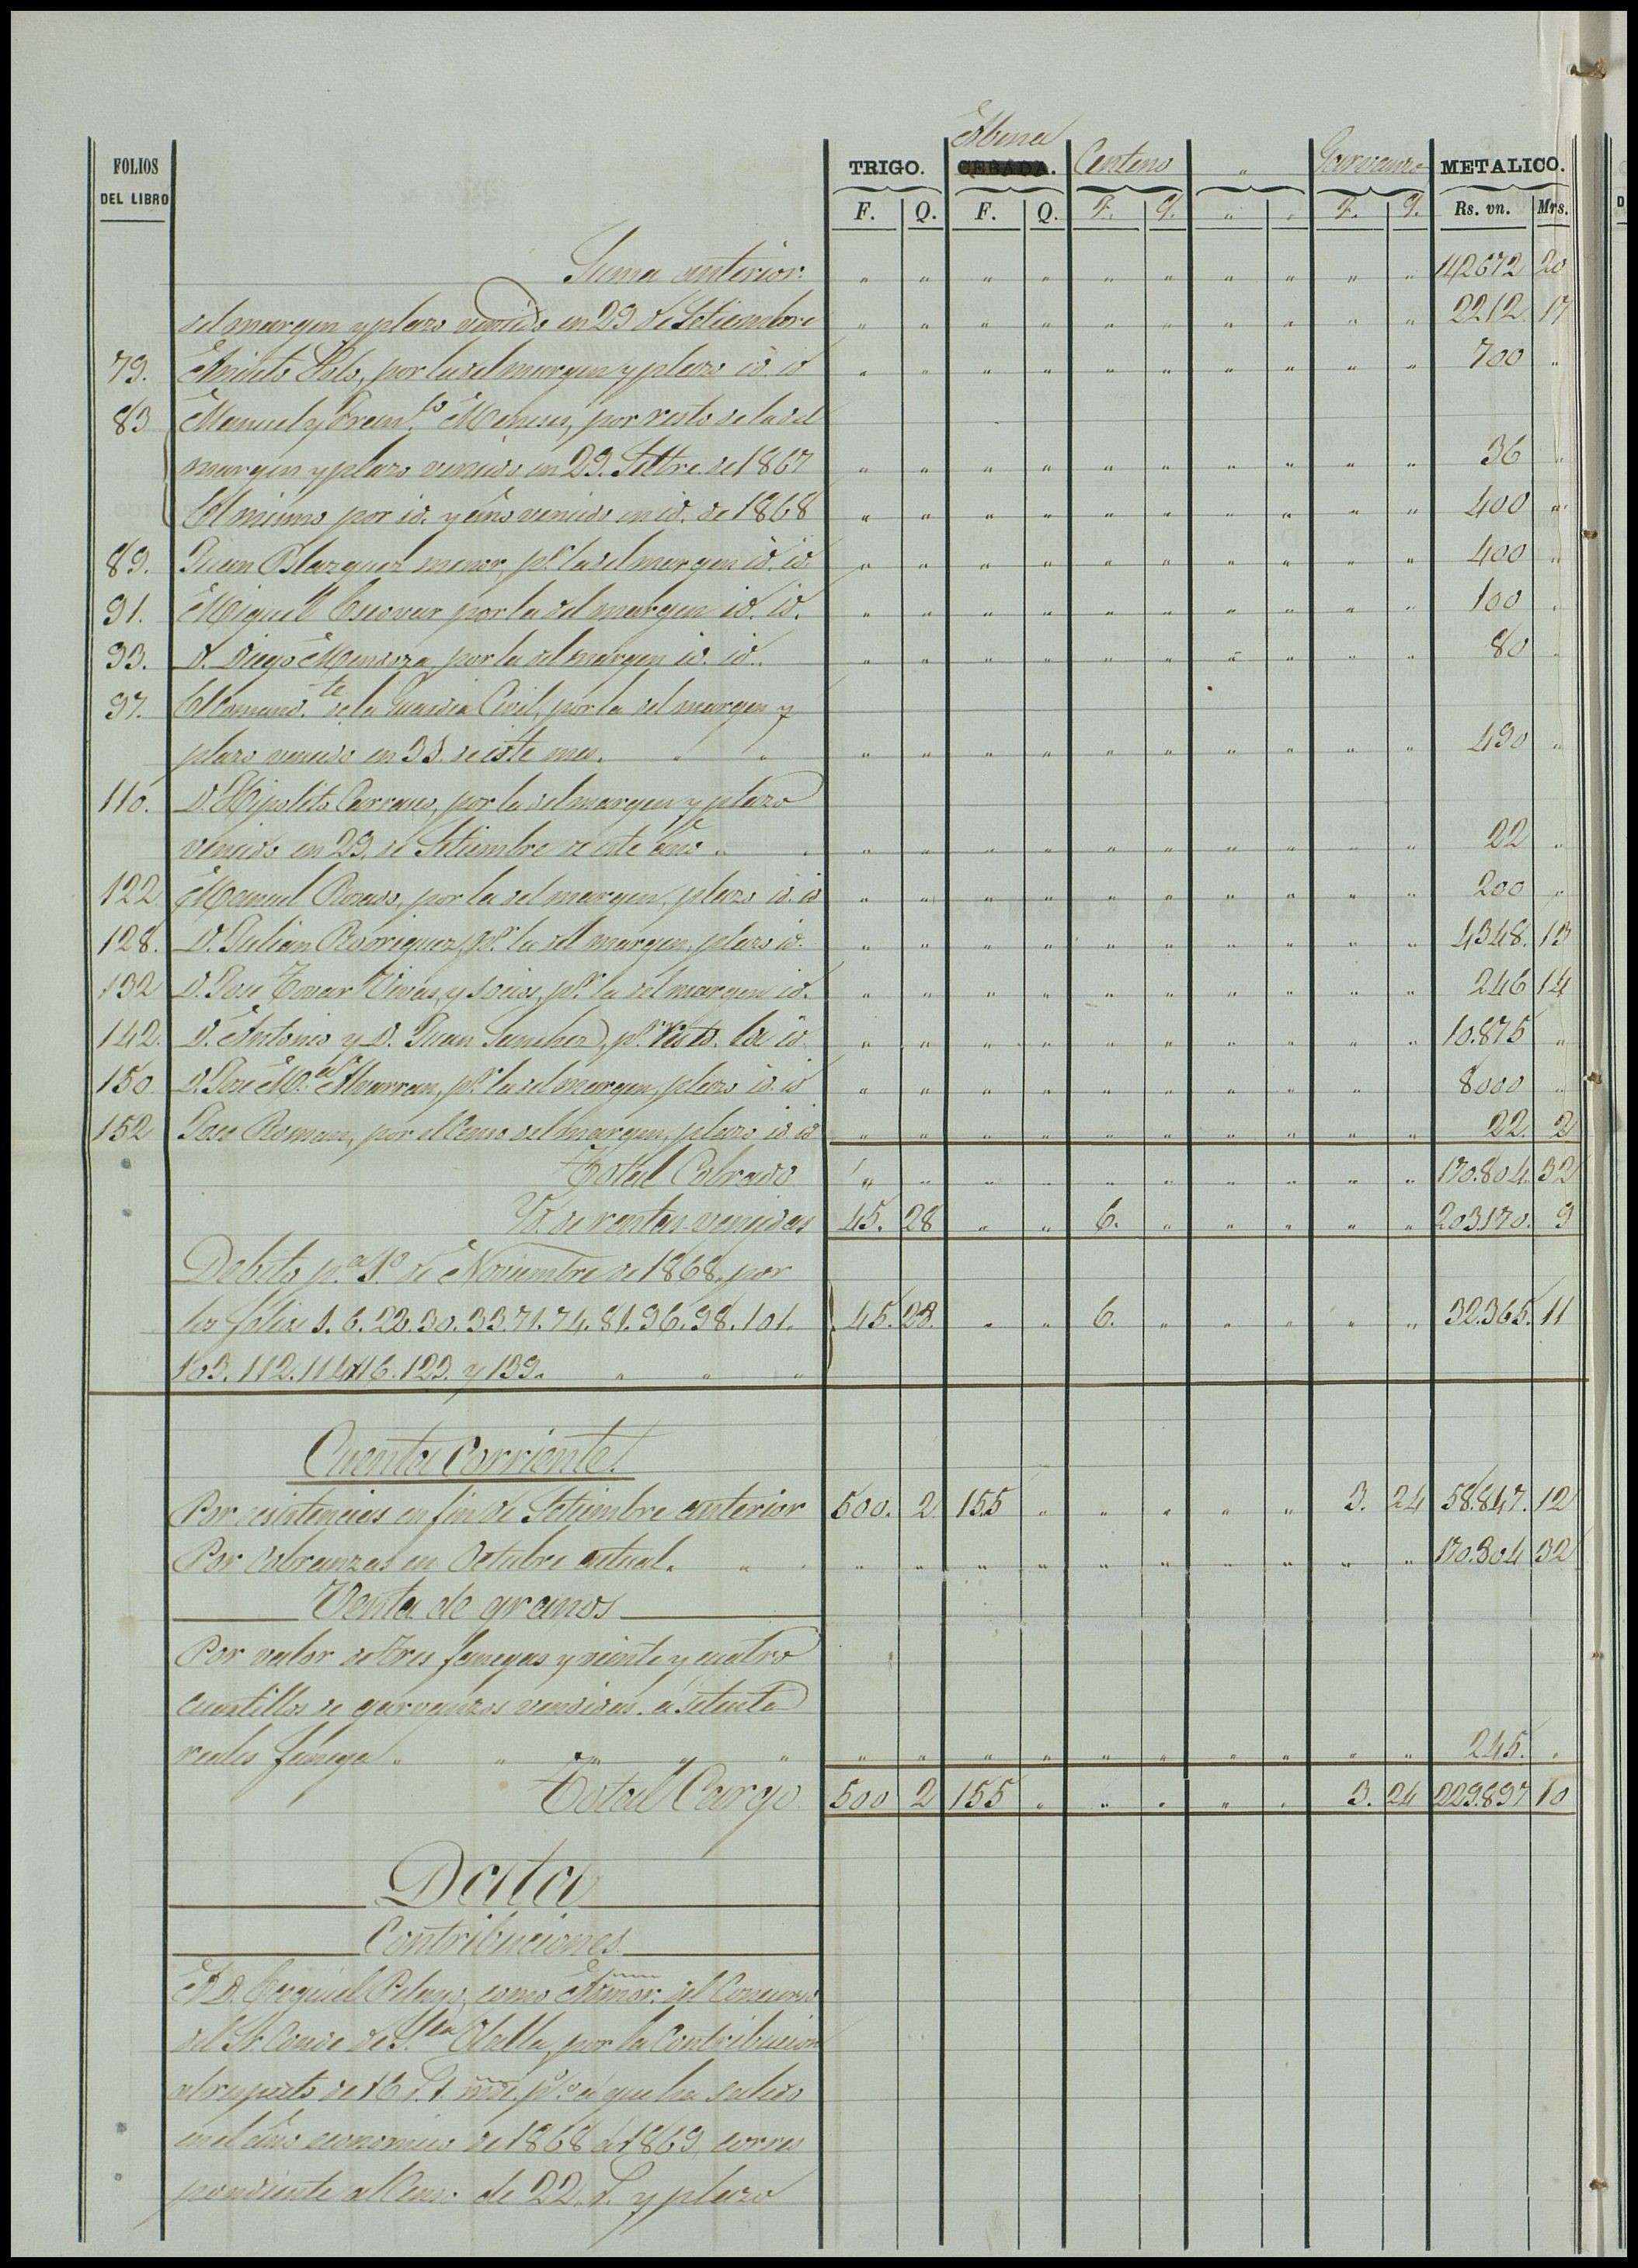 Abena
FOLIOS TRIGO. CEBADA. Centeno " Garvanzo METALICO.
DEL LIBRO F. Q. F. Q. F. Q. " " F. Q. Rs. vn. Mrs.
Suma anterior " " " " " " " " " " 142672 20
del margen y plazo vencido en 29 de Setiembre " " " " " " " " " " 2212. 17
79. Aniceto Polo, por la del margen y plazo id. id " " " " " " " " " " 700 "
83 Manuel y Fran.co Meneses, por resto de la del
margen y plazo vencido en 29. Settre. de 1867 " " " " " " " " " " 36 "
El mismo por id. y año vencido en id. de 1868 " " " " " " " " " " 400 "
89. Juan Blazquez menor, pr. la del margen id. id. " " " " " " " " " " 400 "
91. Miguel Escovar por la del margen id. id. " " " " " " " " " " 100 "
93. D. Diego Mendoza, por la del margen id. id. " " " " " " " " " " 80 "
97. El Comand.te de la Guardia Civil, por la del margen y
plazo vencido en de este mes. " " " " " " " " " " " " 490 "
110. D. Hipolito Carrasco, por la del margen y plazo
vencido en 29. de Setiembre de este año " " " " " " " " " " " " 22 "
122. Manuel Rosado, por la del margen, plazo id. id " " " " " " " " " " 200 "
128. D. Julian Rodriguez, pr. la del margen, plazo id. " " " " " " " " " " 4348. 13
132 D. Jose Tovar Vivas, y socios, pr. la del margen id. " " " " " " " " " " 246 14
142. D. Antonio y D. Juan Sanchez, pr. resto de id. " " " " " " " " " " 10.875 "
150 D. Jose M.a Albarran, pr. la del margen, plazo id. id " " " " " " " " " 8000 "
152 Jose Roman, por el Censo del margen, plazo id. id " " " " " " " " " " 22. 2
Total Cobrado " " " " " " " " " " 170.804. 32
Id. de rentas vencidas 45. 28 " " 6. " " " " " 203170. 9
Debito p.a 1.o de Noviembre de 1868. por
los folios 1. 6. 22. 30. 33. 71. 74. 81. 96. 98. 101. 45. 28. " " 6. " " " " " 32.365. 11
103. 112. 114. 116. 123. y 139. " " "
Cuenta Corriente.
Por existencias en fin de Setiembre anterior 500. 2. 155 " " " " " 3. 24 58.847. 12
Por cobranzas en Octubre actual. " " " " " " " " " " " " 170.804 32
Venta de granos
Por valor de tres fanegas y veinte y cuatro
cuartillos de garvanzos vendidos. a setenta
reales fanega " " " " " " " " " " " " " " " 245. "
Total Cargo. 500 2 155 " " " " " 3. 24 229.897 10
Data
Contribuciones
A D. Ezequiel Pelayo, como Admor. del Concurso
del Sr. Conde de S.ta Olalla, por la Contribucion
al respecto de 16 á que ha salido
en el año economico de 1868 á 1869, corres
pondiente al Censo de 22. y plazo